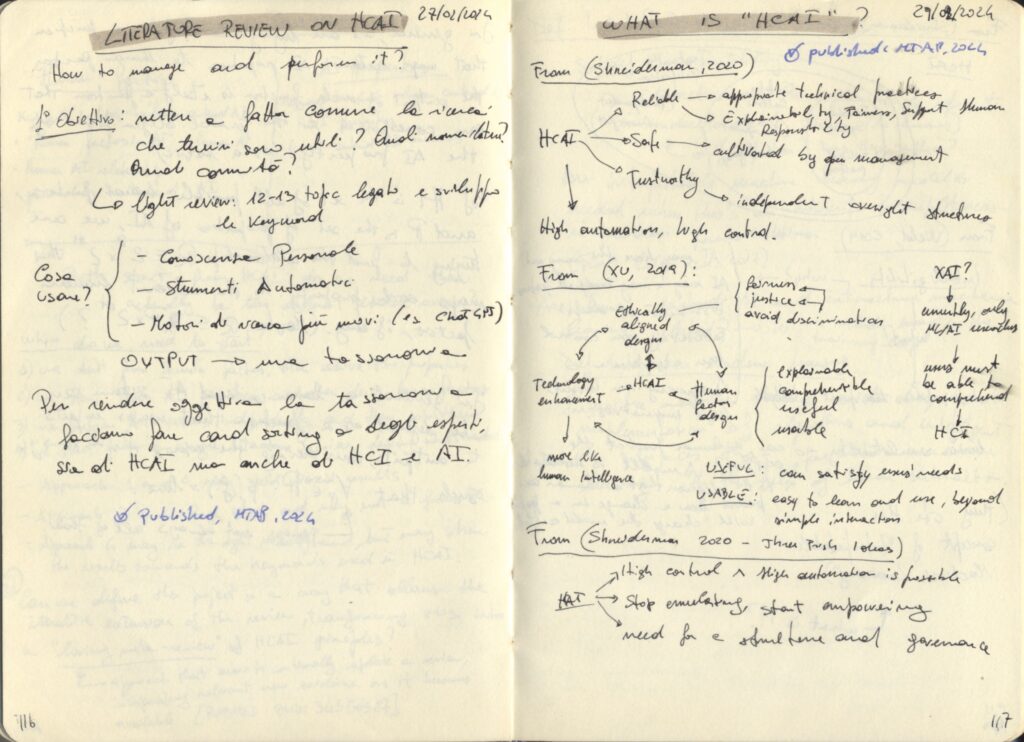 LITERATURE REVIEW ON HCAI 27/02/2024
How to manage and perform it?
1° Obiettivo: mettere a fattor comune la ricerca
che termini sono utili? Quali nomenclature?
Quali comunità?
↳ light review: 12-13 topic legato e sviluppo
le keyword
Cosa usare?
- Conoscenza Personale
- Strumenti Automatici
- Motori di ricerca più nuovi (es ChatGPT)
OUTPUT → una tassonomia
Per rendere oggettiva la tassonomia
facciamo fare card sorting a degli esperti,
sia di HCAI ma anche di HCI e AI.
published, MTAP, 2024
116
WHAT IS "HCAI"? 29/02/2024
published: MTAP, 2024
From (Shneiderman, 2020)
HCAI
Reliable → appropriate technical practices
→ Explainability, Fairness, Support Human
Responsibility
Safe → cultivated by open management
Trustworthy
→ independent oversight structures
High automation, high control.
From (XU, 2019):
Ethically
aligned
design
fairness
justice
avoid discrimination
Technology
enhancement
HCAI
Human
factors
design
explainable
comprehensible
useful
usable
more like
human intelligence
XAI?
currently, only
ML/AI
users must
be able to
comprehend
HCI
USEFUL: can satisfy users' needs
USABLE: easy to learn and use, beyond
simple interaction
From (Shneiderman 2020 - Three Fresh Ideas)
HAI
→ High control ∧ High automation is possible
→ Stop emulating, start empowering
→ need for a structure and governance
117